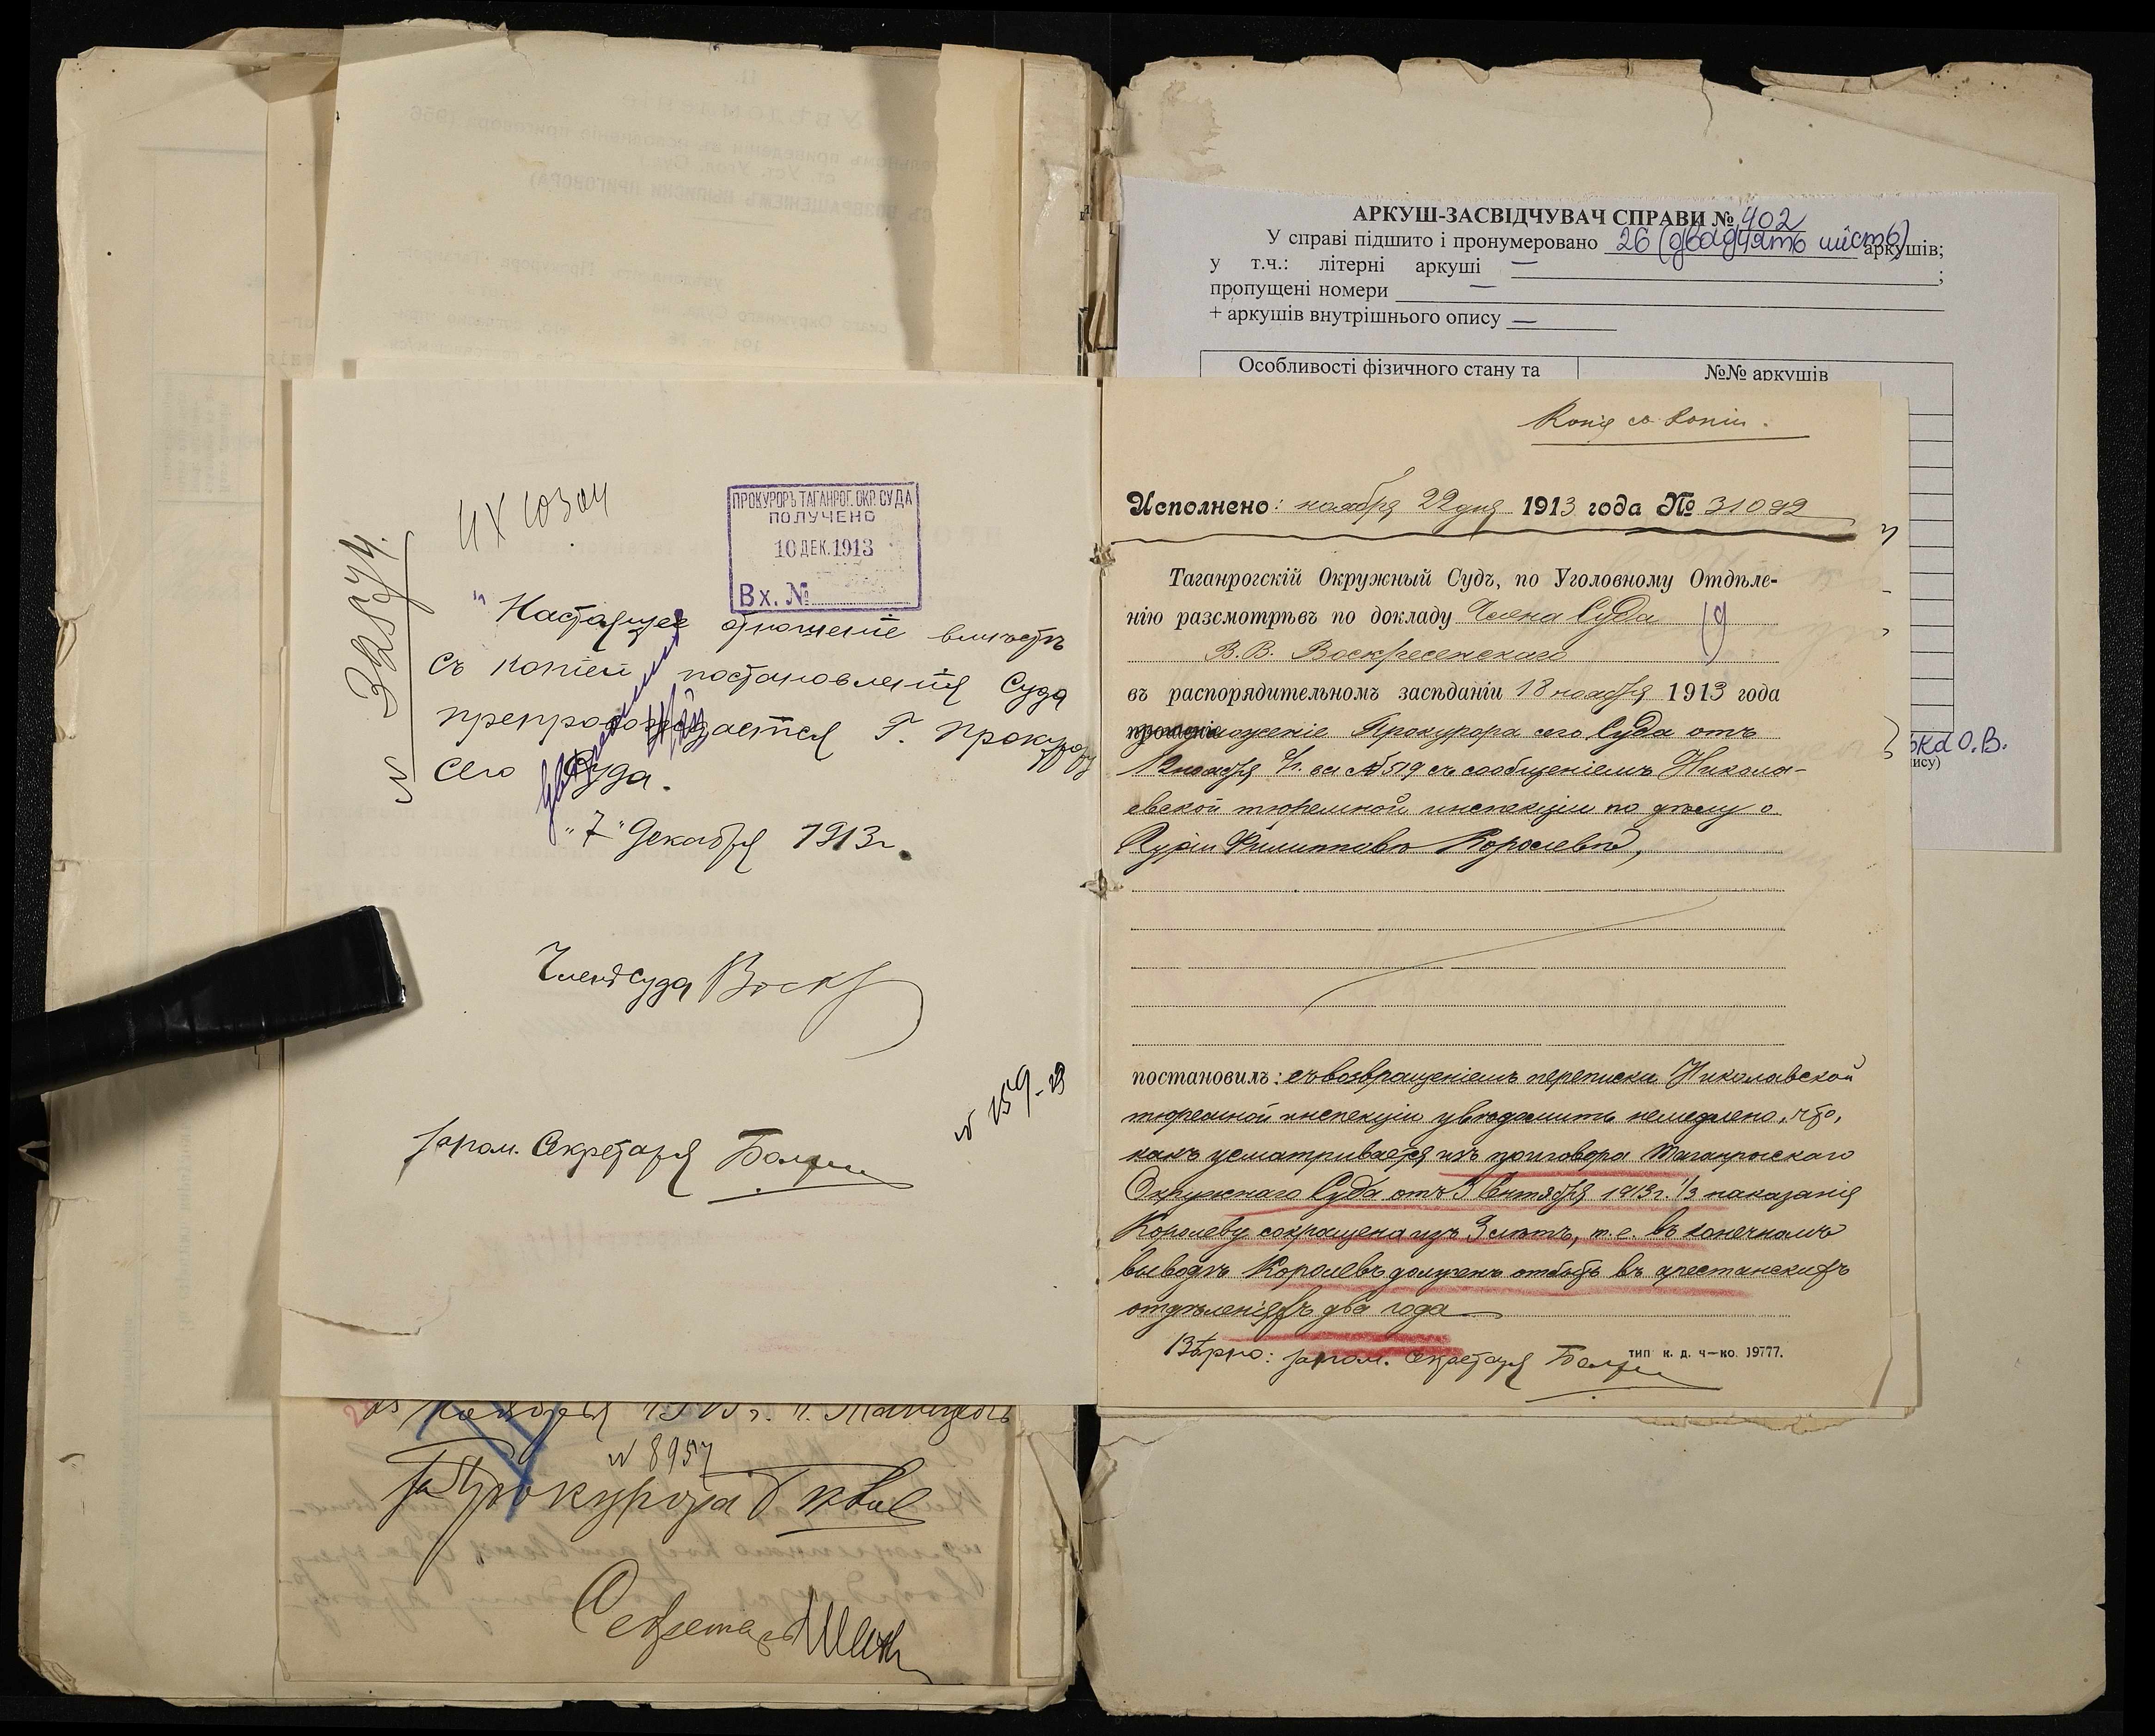 ПРОКУРОРЪ ТАГАНРОГ. ОКР. СУДА
ПОЛУЧЕНО
10 ДЕК. 1913
Вх. №
Настоящее отношеніе вмѣстѣ
съ копіей постановленія Суда
препровождается Г. Прокурору
сего Суда.
"7" Декабря 1913 г.
Членъ Суда
За пом. Секретаря
№ 159-13
№ 8957
За Прокурора
Секретарь
АРКУШ-ЗАСВІДЧУВАЧ СПРАВИ № 402
У справі підшито і пронумеровано 26 (двадцять шість) аркушів;
у т.ч.: літерні аркуші — ;
пропущені номери —
+ аркушів внутрішнього опису —
Особливості фізичного стану та
№№ аркушів
О.В.
Копія съ копіи.
Исполнено: ноября 22 дня 1913 года № 31092
Таганрогскій Окружный Судъ, по Уголовному Отдѣле-
нію разсмотрѣвъ по докладу Члена Суда
В. В. Воскресенскаго
въ распорядительномъ засѣданіи 18 ноября 1913 года
Прокурора сего Суда отъ
12 ноября за № 519 съ сообщеніемъ Никола-
евской тюремной инспекціи по дѣлу о
Филипповѣ Королевѣ,
постановилъ: съ возвращеніемъ переписки Николаевской
тюремной инспекціи увѣдомить немедлено, что,
какъ усматривается изъ приговора Таганрогскаго
Окружнаго Суда отъ 5 Сентября 1913 г. 1/3 наказанія
Королеву сокращена изъ 3 лѣтъ, т.е. въ конечномъ
выводѣ Королевъ долженъ отбыть въ арестанскихъ
отдѣленіяхъ два года
Вѣрно: за пом. Секретаря
тип. к. д. ч—ко. 19777.